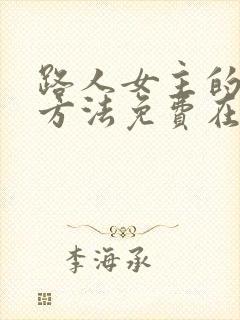 路人女主的
方法免費在
李海承